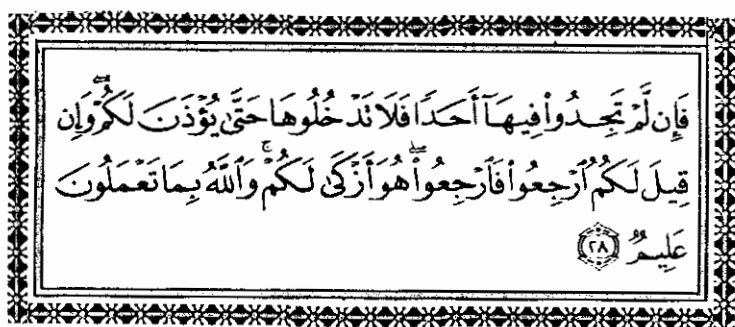 فَإِن لَّمْ تَجِدُوا۟ فِيهَآ أَحَدًا فَلَا تَدْخُلُوهَا حَتَّىٰ يُؤْذَنَ لَكُمْ ۖ وَإِن
قِيلَ لَكُمُ ٱرْجِعُوا۟ فَٱرْجِعُوا۟ ۖ هُوَ أَزْكَىٰ لَكُمْ ۚ وَٱللَّهُ بِمَا تَعْمَلُونَ
عَلِيمٌ ﴿٢٨﴾